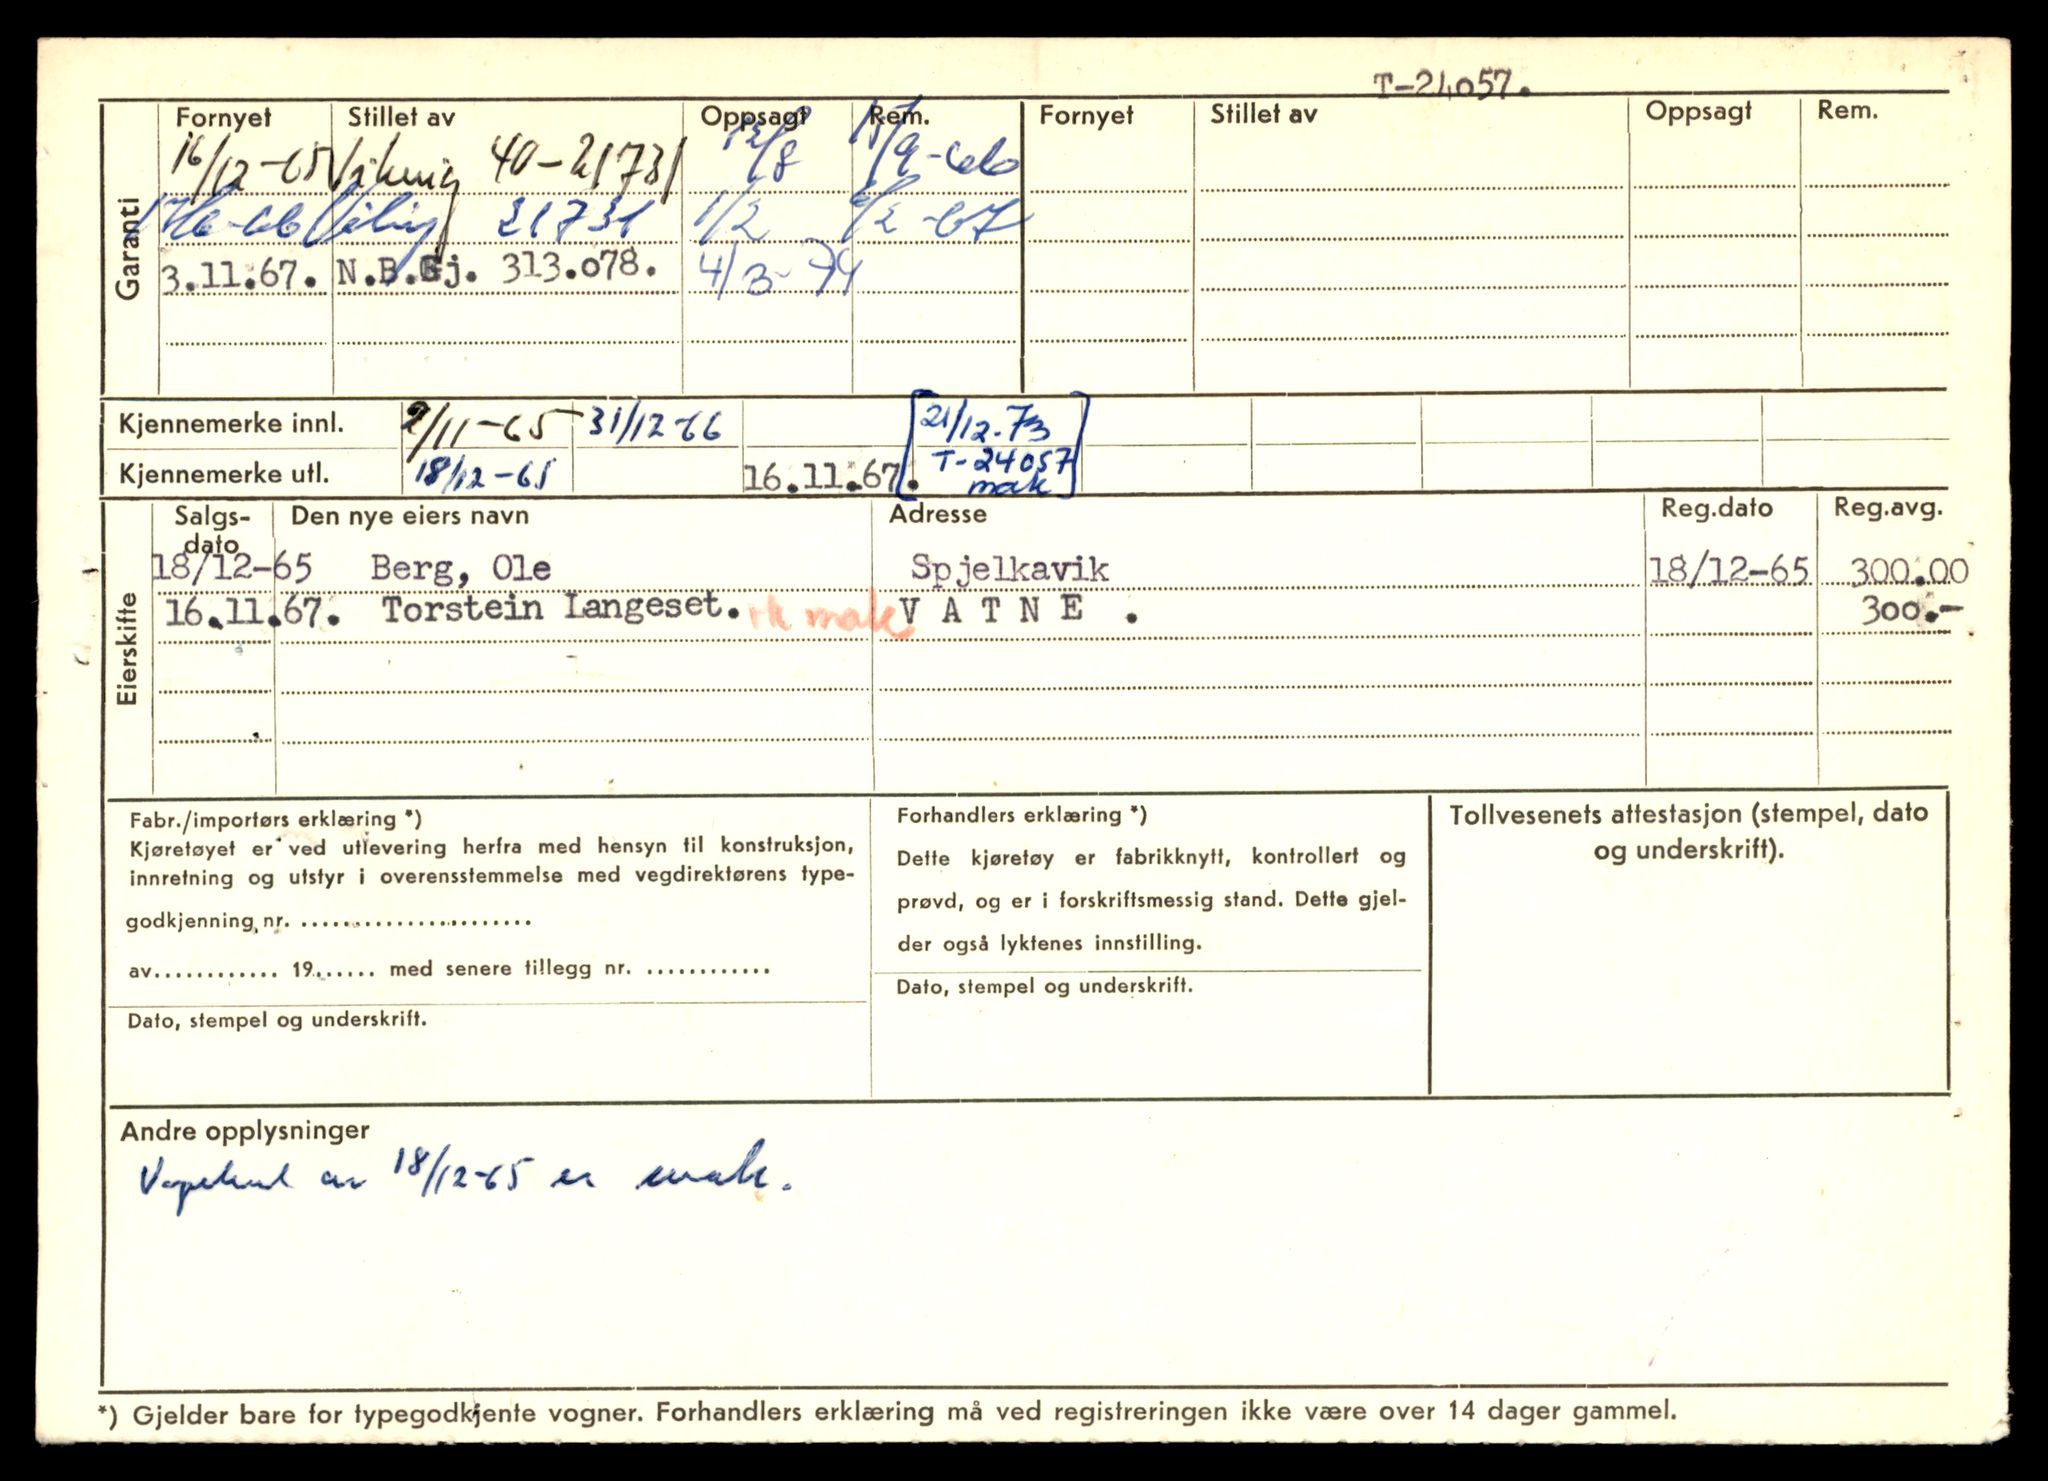 T-24057.
Garanti
Fornyet Stillet av Oppsagt Rem. Fornyet Stillet av Oppsagt Rem.
16/12-65 Viking 40-21731 12/8 15/9-66
21731 1/2 /2-67
3.11.67. N.B.Gj. 313.078. 4/3-74
Kjennemerke innl. 2/11-65 31/12-66 21/12-73
Kjennemerke utl. 18/12-65 16.11.67. T-24057
mak
Eierskifte
Salgs-dato Den nye eiers navn Adresse Reg.dato Reg.avg.
18/12-65 Berg, Ole Spjelkavik 18/12-65 300.00
16.11.67. Torstein Langeset. mak V A T N E . 300.-
Fabr./importørs erklæring *)
Kjøretøyet er ved utlevering herfra med hensyn til konstruksjon,
innretning og utstyr i overensstemmelse med vegdirektørens type-
godkjenning nr. ......................
av............ 19...... med senere tillegg nr. ............
Dato, stempel og underskrift.
Forhandlers erklæring *)
Dette kjøretøy er fabrikknytt, kontrollert og
prøvd, og er i forskriftsmessig stand. Dette gjel-
der også lyktenes innstilling.
Dato, stempel og underskrift.
Tollvesenets attestasjon (stempel, dato
og underskrift).
Andre opplysninger
Vognkort av 18/12-65 er mak.
*) Gjelder bare for typegodkjente vogner. Forhandlers erklæring må ved registreringen ikke være over 14 dager gammel.